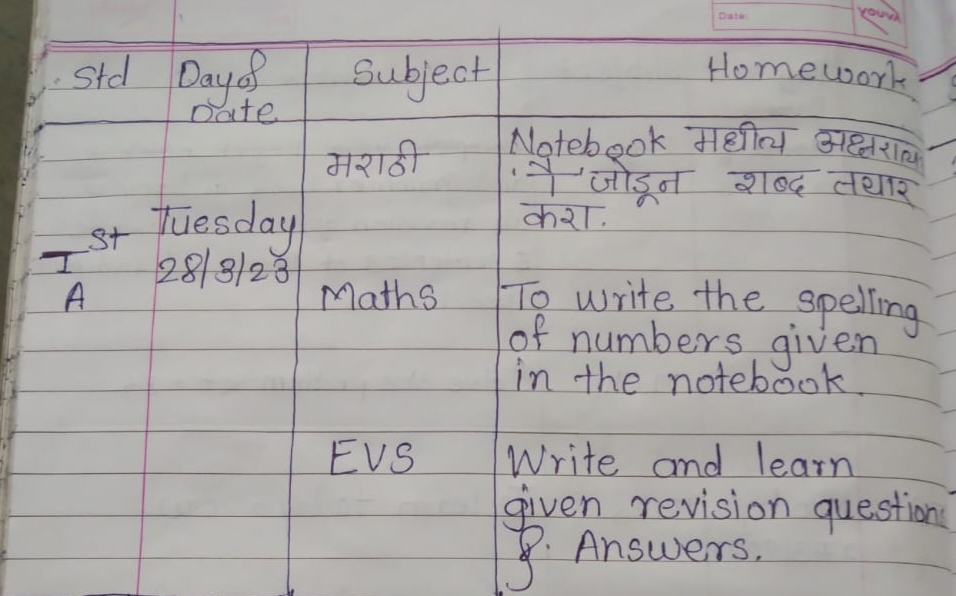 Date:
YOUVA
Std Day of Subject Homework
Date
मराठी Notebook मधील अक्षराला
'ै' जोडून शब्द तयार
करा.
Ist Tuesday
A 28/3/23
Maths To write the spelling
of numbers given
in the notebook.
EVS Write and learn
given revision question
&. Answers.